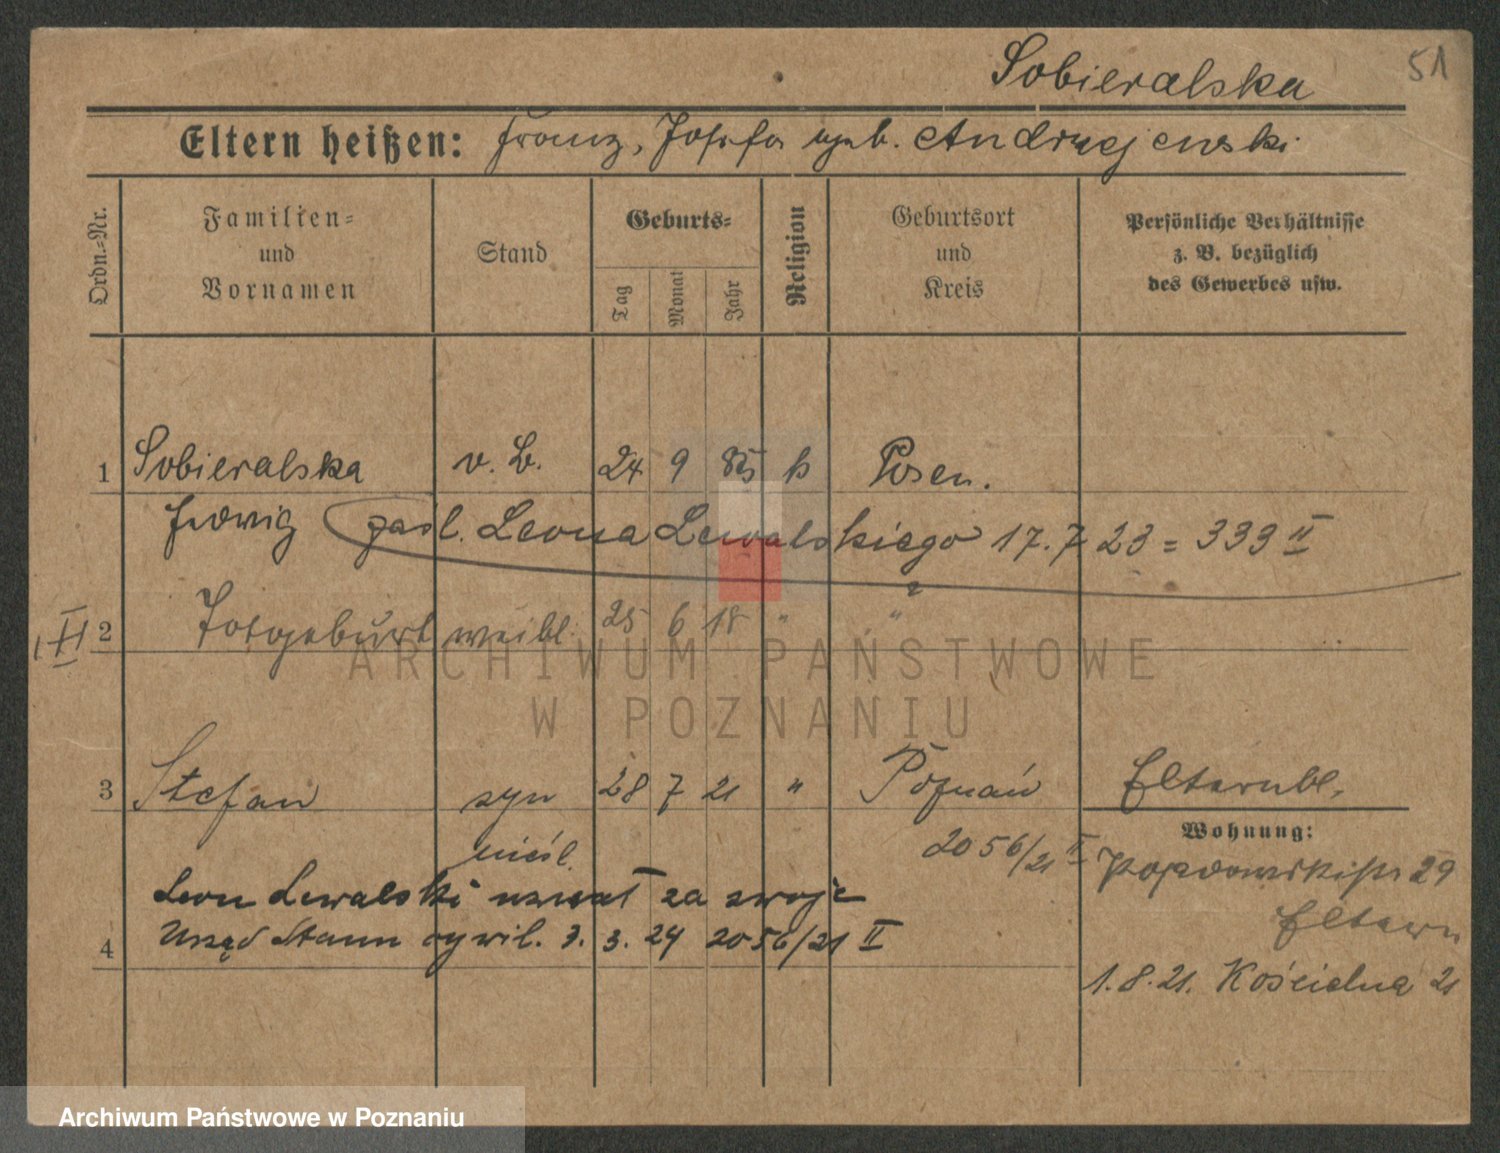 Sobieralska
51
Eltern heißen: Franz, Josefa geb. Andrzejewski
Ordn.=Nr.
Familien=
und
Vornamen
Stand
Geburts=
Tag
Monat
Jahr
Religion
Geburtsort
und
Kreis
Persönliche Verhältnisse
z. B. bezüglich
des Gewerbes usw.
1 Sobieralska v. B. 24 9 85 k Posen.
Jadwig zaśl. Leona Lewalskiego 17.7 23 = 333 II
2 Totgeburt weibl. 25 6 18 " "
ARCHIWUM PAŃSTWOWE
W POZNANIU
3 Stefan syn 28 7 21 " Poznań Elternbl.
nieśl. 2056/21 II
Wohnung:
29
Leon Lewalski uznał za swoje
Eltern
4 Urząd Stanu cywil. 3. 3. 24 2056/21 II
1.8.21. Kościelna 21
Archiwum Państwowe w Poznaniu